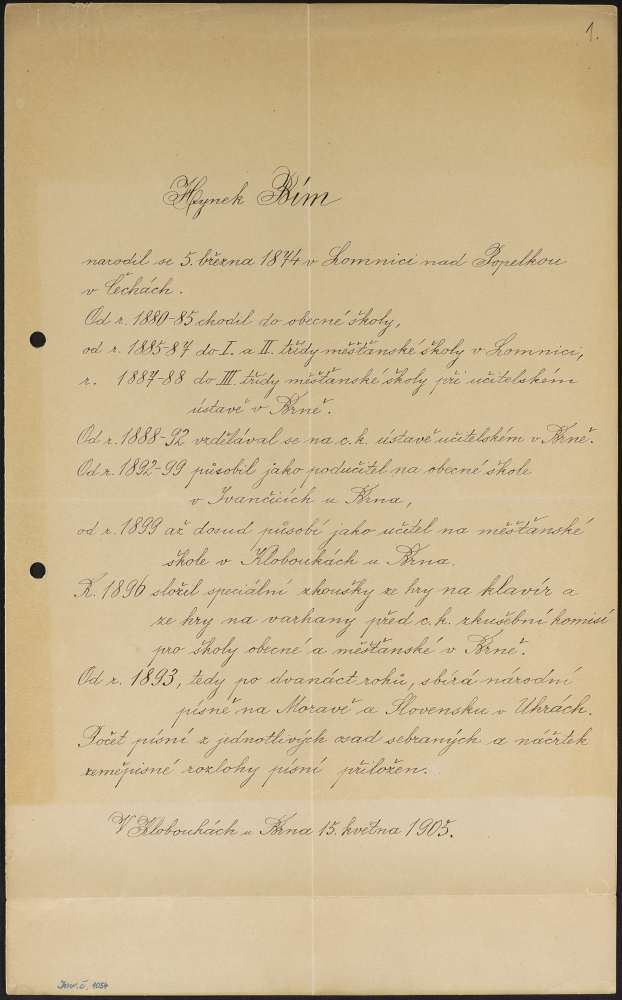 1.
Hynek Bím
narodil se 5. března 1874 v Lomnici nad Popelkou
v Čechách.
Od r. 1880-85 chodil do obecné školy,
od r. 1885-87 do I. a II. třídy měšťanské školy v Lomnici,
r. 1887-88 do III. třídy měšťanské školy při učitelském
ústavě v Brně.
Od r. 1888-92 vzdělával se na c. k. ústavě učitelském v Brně.
Od r. 1892-99 působil jako podučitel na obecné škole
v Ivančicích u Brna,
od r. 1899 až dosud působí jako učitel na měšťanské
škole v Kloboukách u Brna.
R. 1896 složil speciální zkoušky ze hry na klavír a
ze hry na varhany před c. k. zkušební komisí
pro školy obecné a měšťanské v Brně.
Od r. 1893, tedy po dvanáct roků, sbírá národní
písně na Moravě a Slovensku v Uhrách.
Počet písní z jednotlivých osad sebraných a náčrtek
zeměpisné rozlohy písní přiložen.
V Kloboukách u Brna 15. května 1905.
Inv. č. 1054